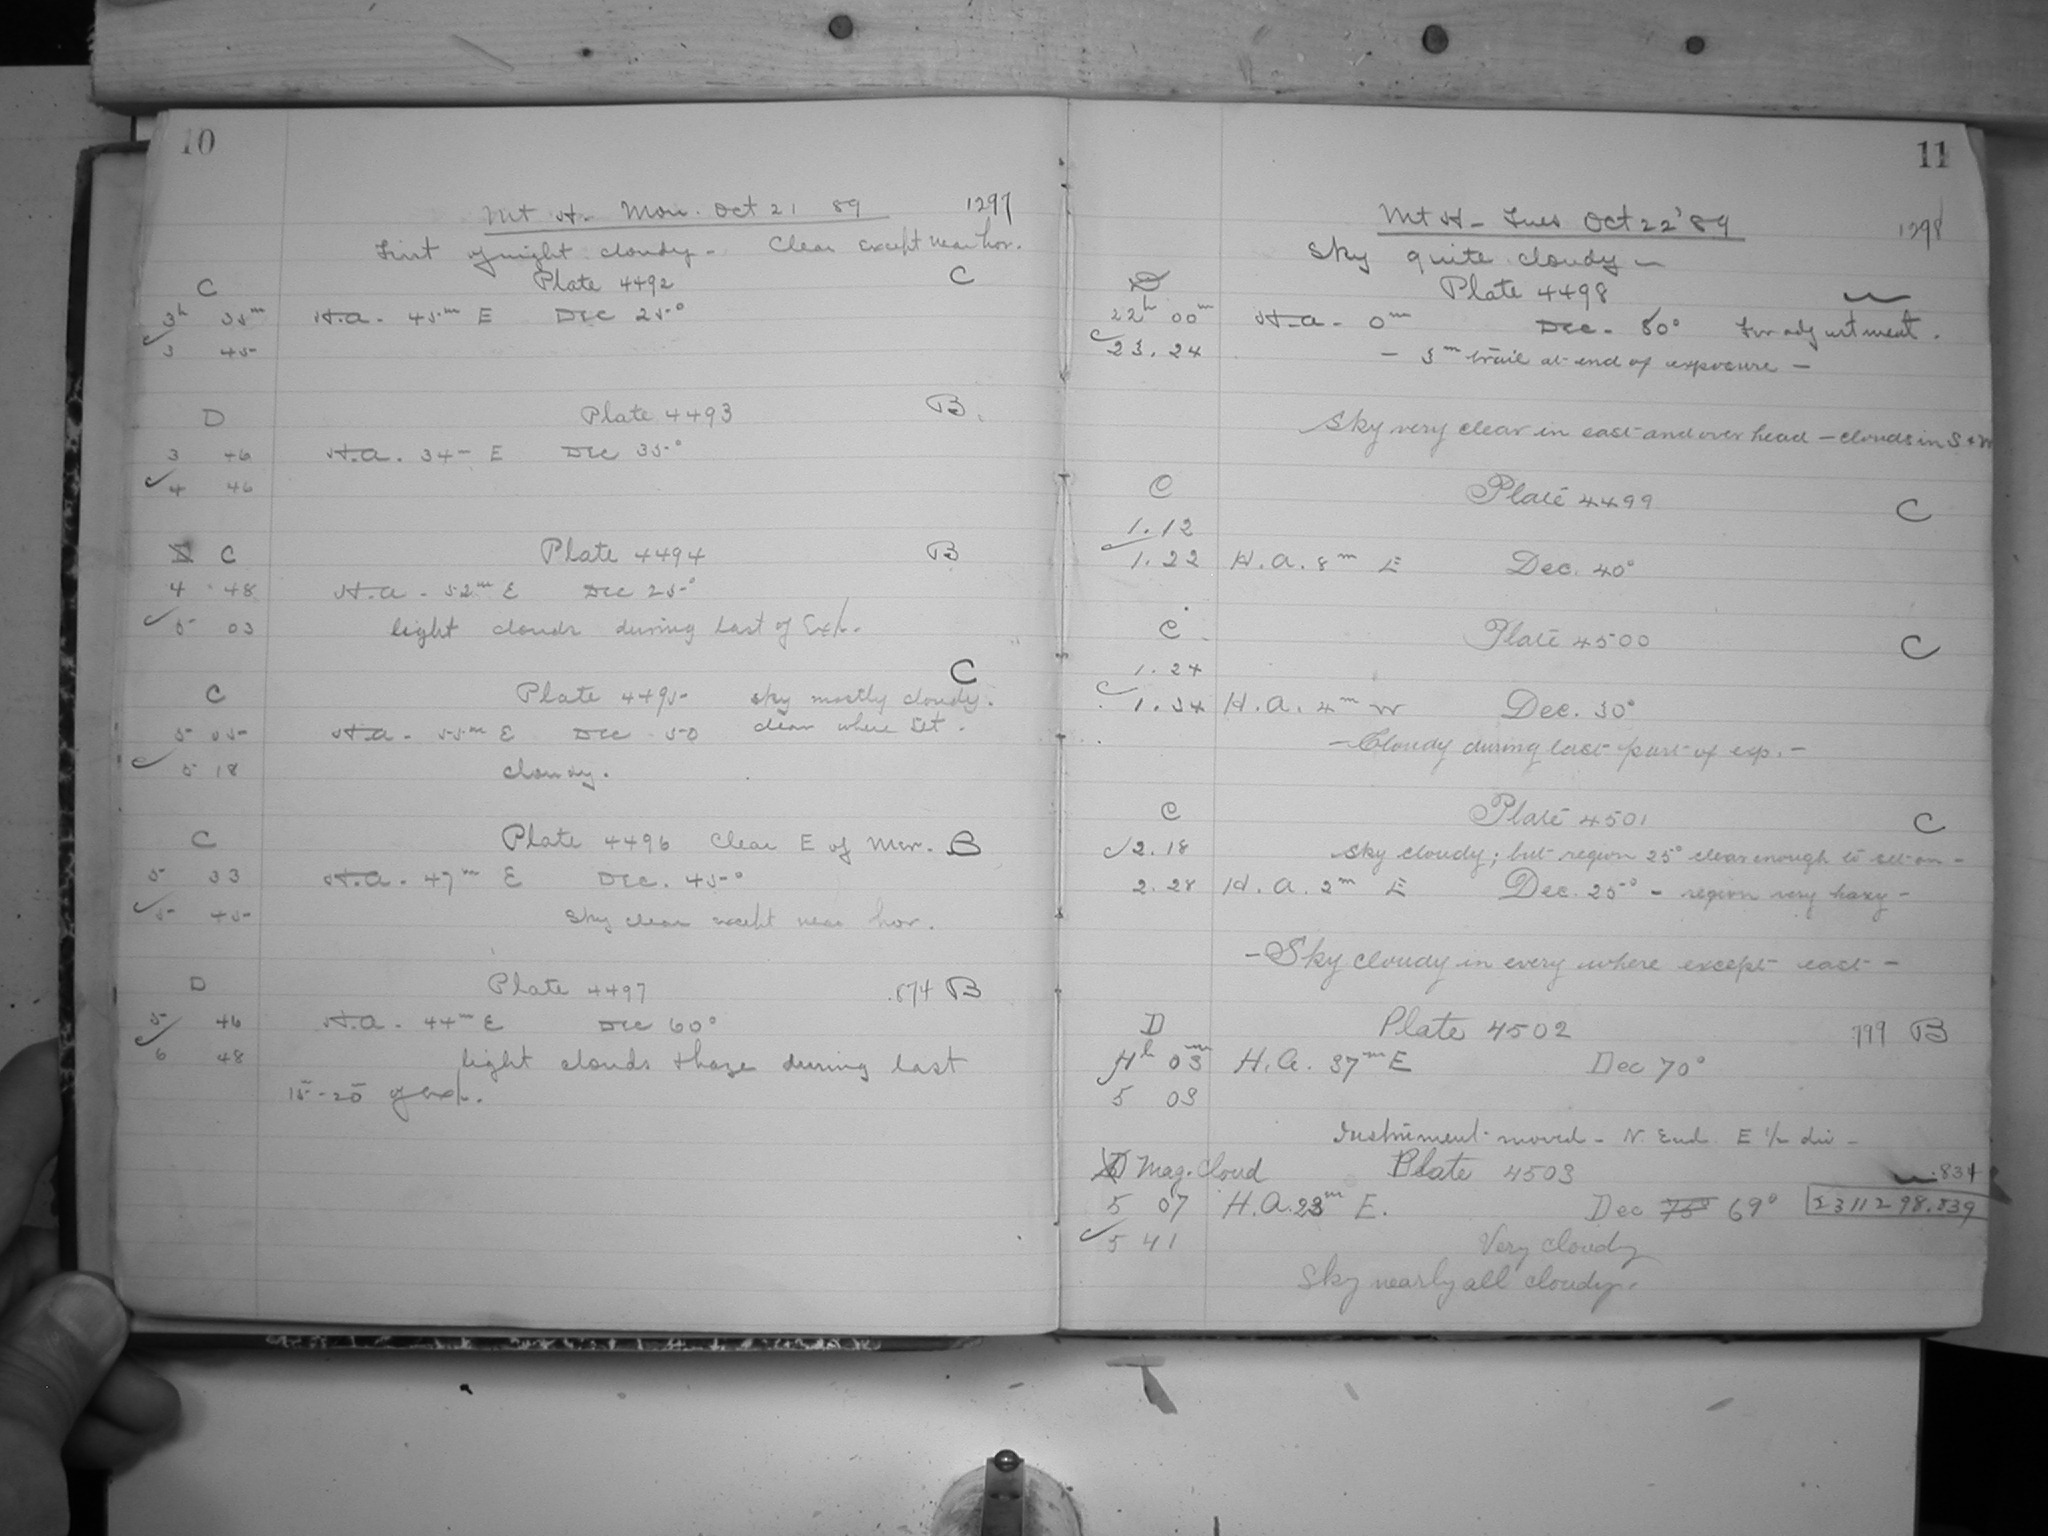 10
Mt H- Mon. Oct 21 89 1297
First of night cloudy- Clear except near hor.
C Plate 4492 C
3h 35m H.a. 45m E Dec 25°
3 45
D Plate 4493 B.
3 46 H.a. 34m E Dec 35°
4 46
C Plate 4494 B
4 48 H.a - 52m E Dec 25°
5 03 light clouds during last of Exp.
C
C Plate 4495 sky mostly cloudy.
5 05 H.a - 55m E Dec 50 clear where set.
5 18 cloudy.
C Plate 4496 Clear E of Mer. B
5 33 H.a - 47m E Dec. 45°
5 45 Sky clear except near hor.
D Plate 4497 .874 B
5 46 H.a - 44m E Dec 60°
6 48 light clouds & haze during last
15-20 of exp.
11
Mt H- Tues Oct 22 '89 1298
Sky quite cloudy -
D Plate 4498
22h 00m H.a - 0m Dec. 80° For adjustment.
23.24 - 3m trail at end of exposure -
Sky very clear in east and over head - clouds in S & W
C Plate 4499 C
1.12
1.22 H.a. 8m E Dec. 40°
C Plate 4500 C
1.24
1.34 H.a. 4m W Dec. 30°
- Cloudy during last part of exp. -
C Plate 4501 C
2.18 Sky cloudy; but region 25° clear enough to set on -
2.28 H.a. 2m E Dec. 25° - region very hazy -
- Sky cloudy in every where except east -
D Plate 4502 .777 B
4h 03m H.a. 37m E Dec 70°
5 03
Instrument moved - N. End. E 1/2 div -
D Mag. Cloud Plate 4503 .834
5 07 H.a. 23m E. Dec 75° 69° 23 11298.839
5 41 Very cloudy
Sky nearly all cloudy.